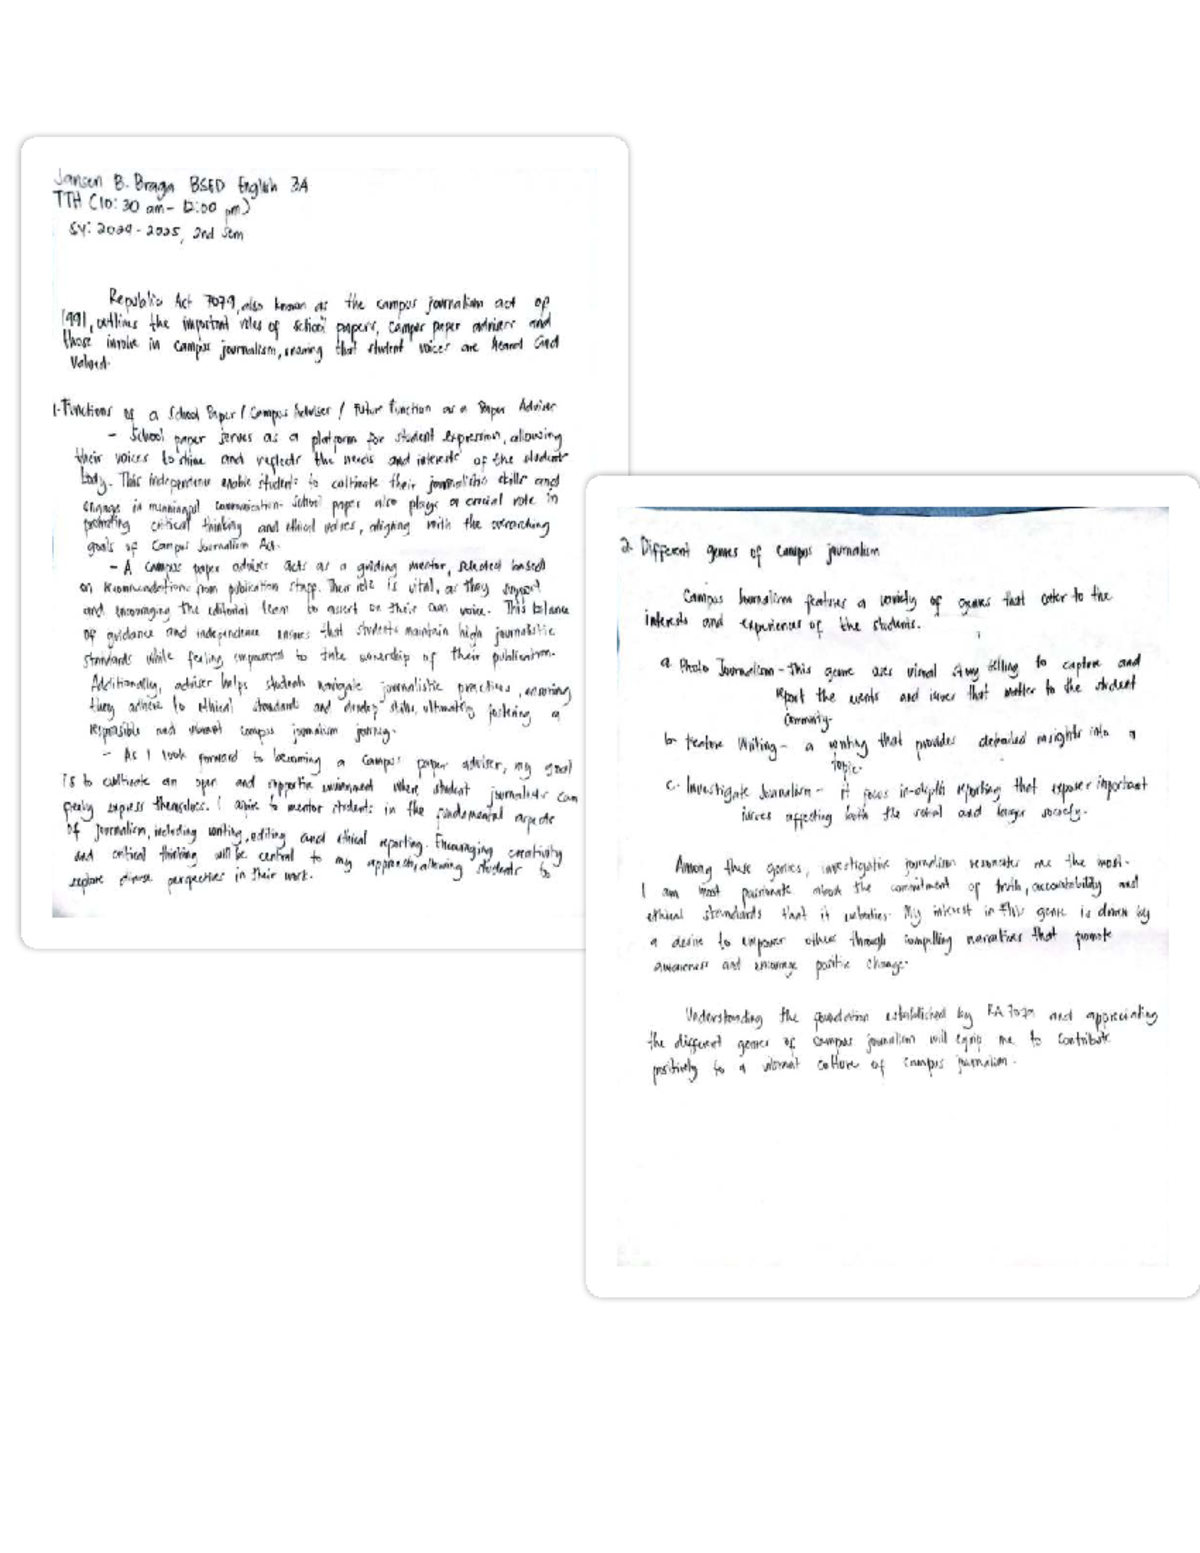 Jansen B. Braga BSED English 3A
TTH (10:30 am - 12:00 pm)
SY: 2024-2025, 2nd Sem
Republic Act 7079, also known as the campus journalism act of
1991, outlines the important roles of school papers, campus paper advisers and
those involve in campus journalism, ensuring that student voices are heard and
valued.
1. Functions of a School Paper / Campus Adviser / Future Function as a Paper Adviser
- School paper serves as a platform for student expression, allowing
their voices to shine and reflects the needs and interests of the student
body. This independence enable students to cultivate their journalistic skills and
engage in meaningful communication. School paper also plays a crucial role in
promoting critical thinking and ethical values, aligning with the overarching
goals of Campus Journalism Act.
- A campus paper adviser acts as a guiding mentor, selected based
on recommendations from publication staff. Their role is vital, as they support
and encouraging the editorial team to assert on their own voice. This balance
of guidance and independence ensures that students maintain high journalistic
standards while feeling empowered to take ownership of their publication.
Additionally, adviser helps students navigate journalistic practices, ensuring
they adhere to ethical standards and develop skills, ultimately fostering a
responsible and vibrant campus journalism journey.
- As I look forward to becoming a campus paper adviser, my goal
is to cultivate an open and supportive environment where student journalists can
freely express themselves. I aspire to mentor students in the fundamental aspects
of journalism, including writing, editing and ethical reporting. Encouraging creativity
and critical thinking will be central to my approach, allowing students to
explore diverse perspectives in their work.
2. Different genres of campus journalism
Campus Journalism features a variety of genres that cater to the
interests and experiences of the students.
a. Photo Journalism - this genre uses visual story telling to capture and
report the events and issues that matter to the student
community.
b. Feature Writing - a writing that provides detailed insights into a
topic.
c. Investigate Journalism - it focus in-depth reporting that expose important
issues affecting both the school and larger society.
Among these genres, investigative journalism resonates me the most.
I am most passionate about the commitment of truth, accountability and
ethical standards that it embodies. My interest in this genre is driven by
a desire to empower others through compelling narratives that promote
awareness and encourage positive change.
Understanding the foundation established by RA 7079 and appreciating
the different genres of campus journalism will equip me to contribute
positively to a vibrant culture of campus journalism.